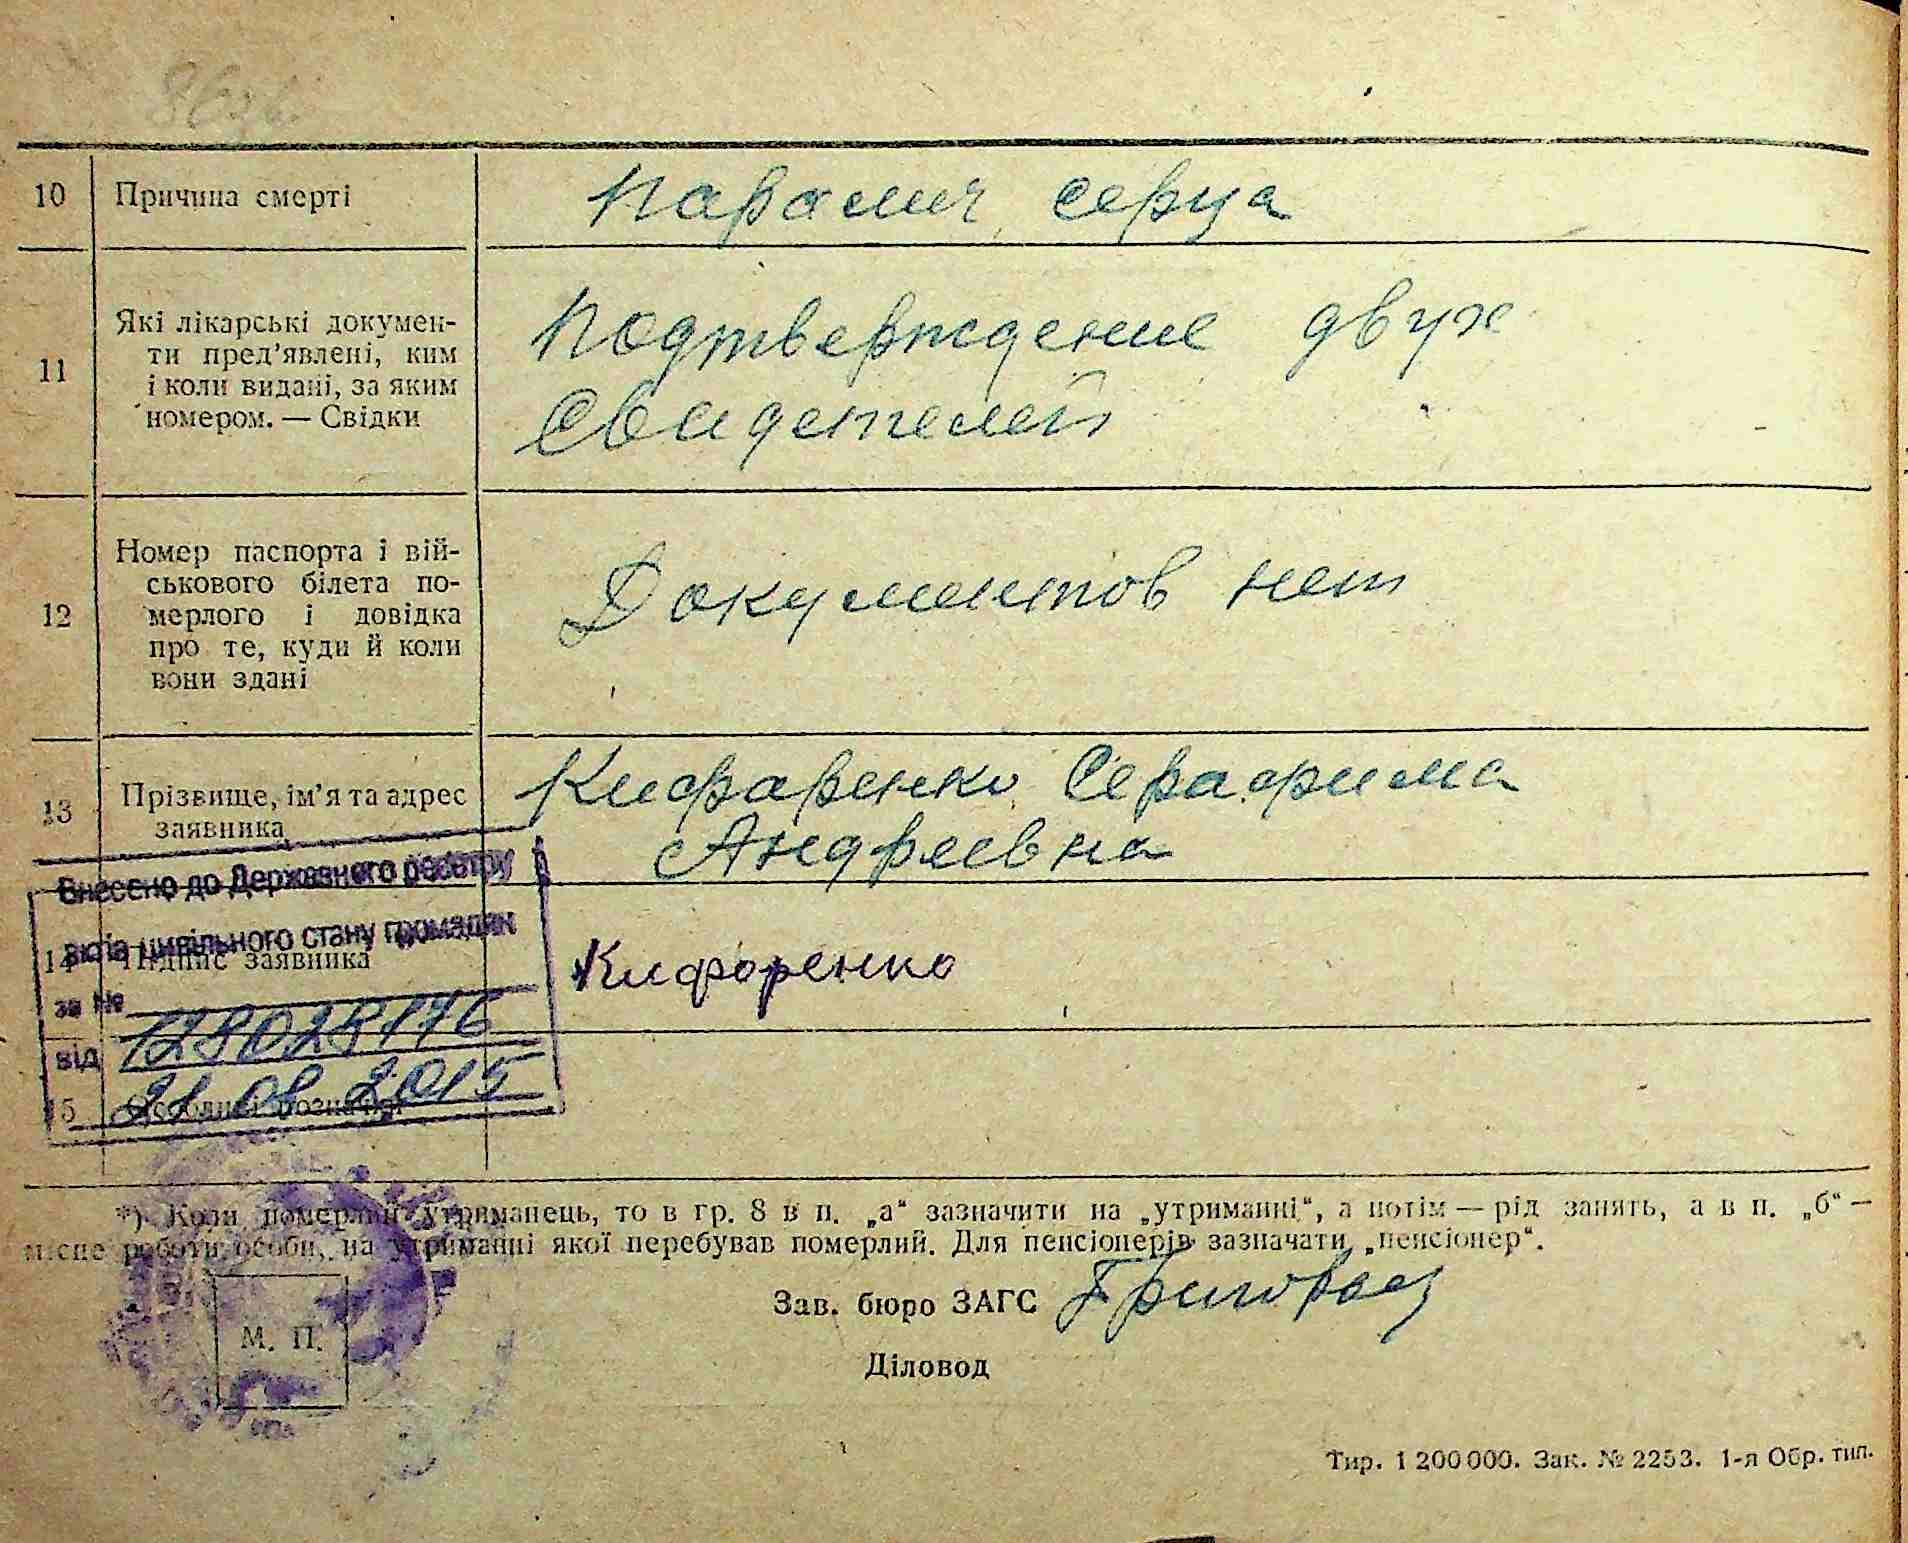 86зв.
10 Причина смерті Паралич серца
11 Які лікарські докумен-
ти пред'явлені, ким
і коли видані, за яким
номером. — Свідки
Подтверждение двух
Свидетелей
12 Номер паспорта і вій-
ськового білета по-
мерлого і довідка
про те, куди й коли
вони здані
Документов нет
13 Прізвище, ім'я та адрес
заявника
Кифаренко Серафима
Андреевна
Внесено до Державного реєстру
актів цивільного стану громадян
14 Підпис заявника Кифоренко
за №
12802
від 21.08.2015
15 Особливі позначки
*) Коли померлий утриманець, то в гр. 8 в п. „а“ зазначити на „утриманні“, а потім — рід занять, а в п. „б“ —
місце роботи особи, на утриманні якої перебував померлий. Для пенсіонерів зазначати „пенсіонер“.
Зав. бюро ЗАГС
М. П.
Діловод
Тир. 1 200 000. Зак. № 2253. 1-я Обр. тип.